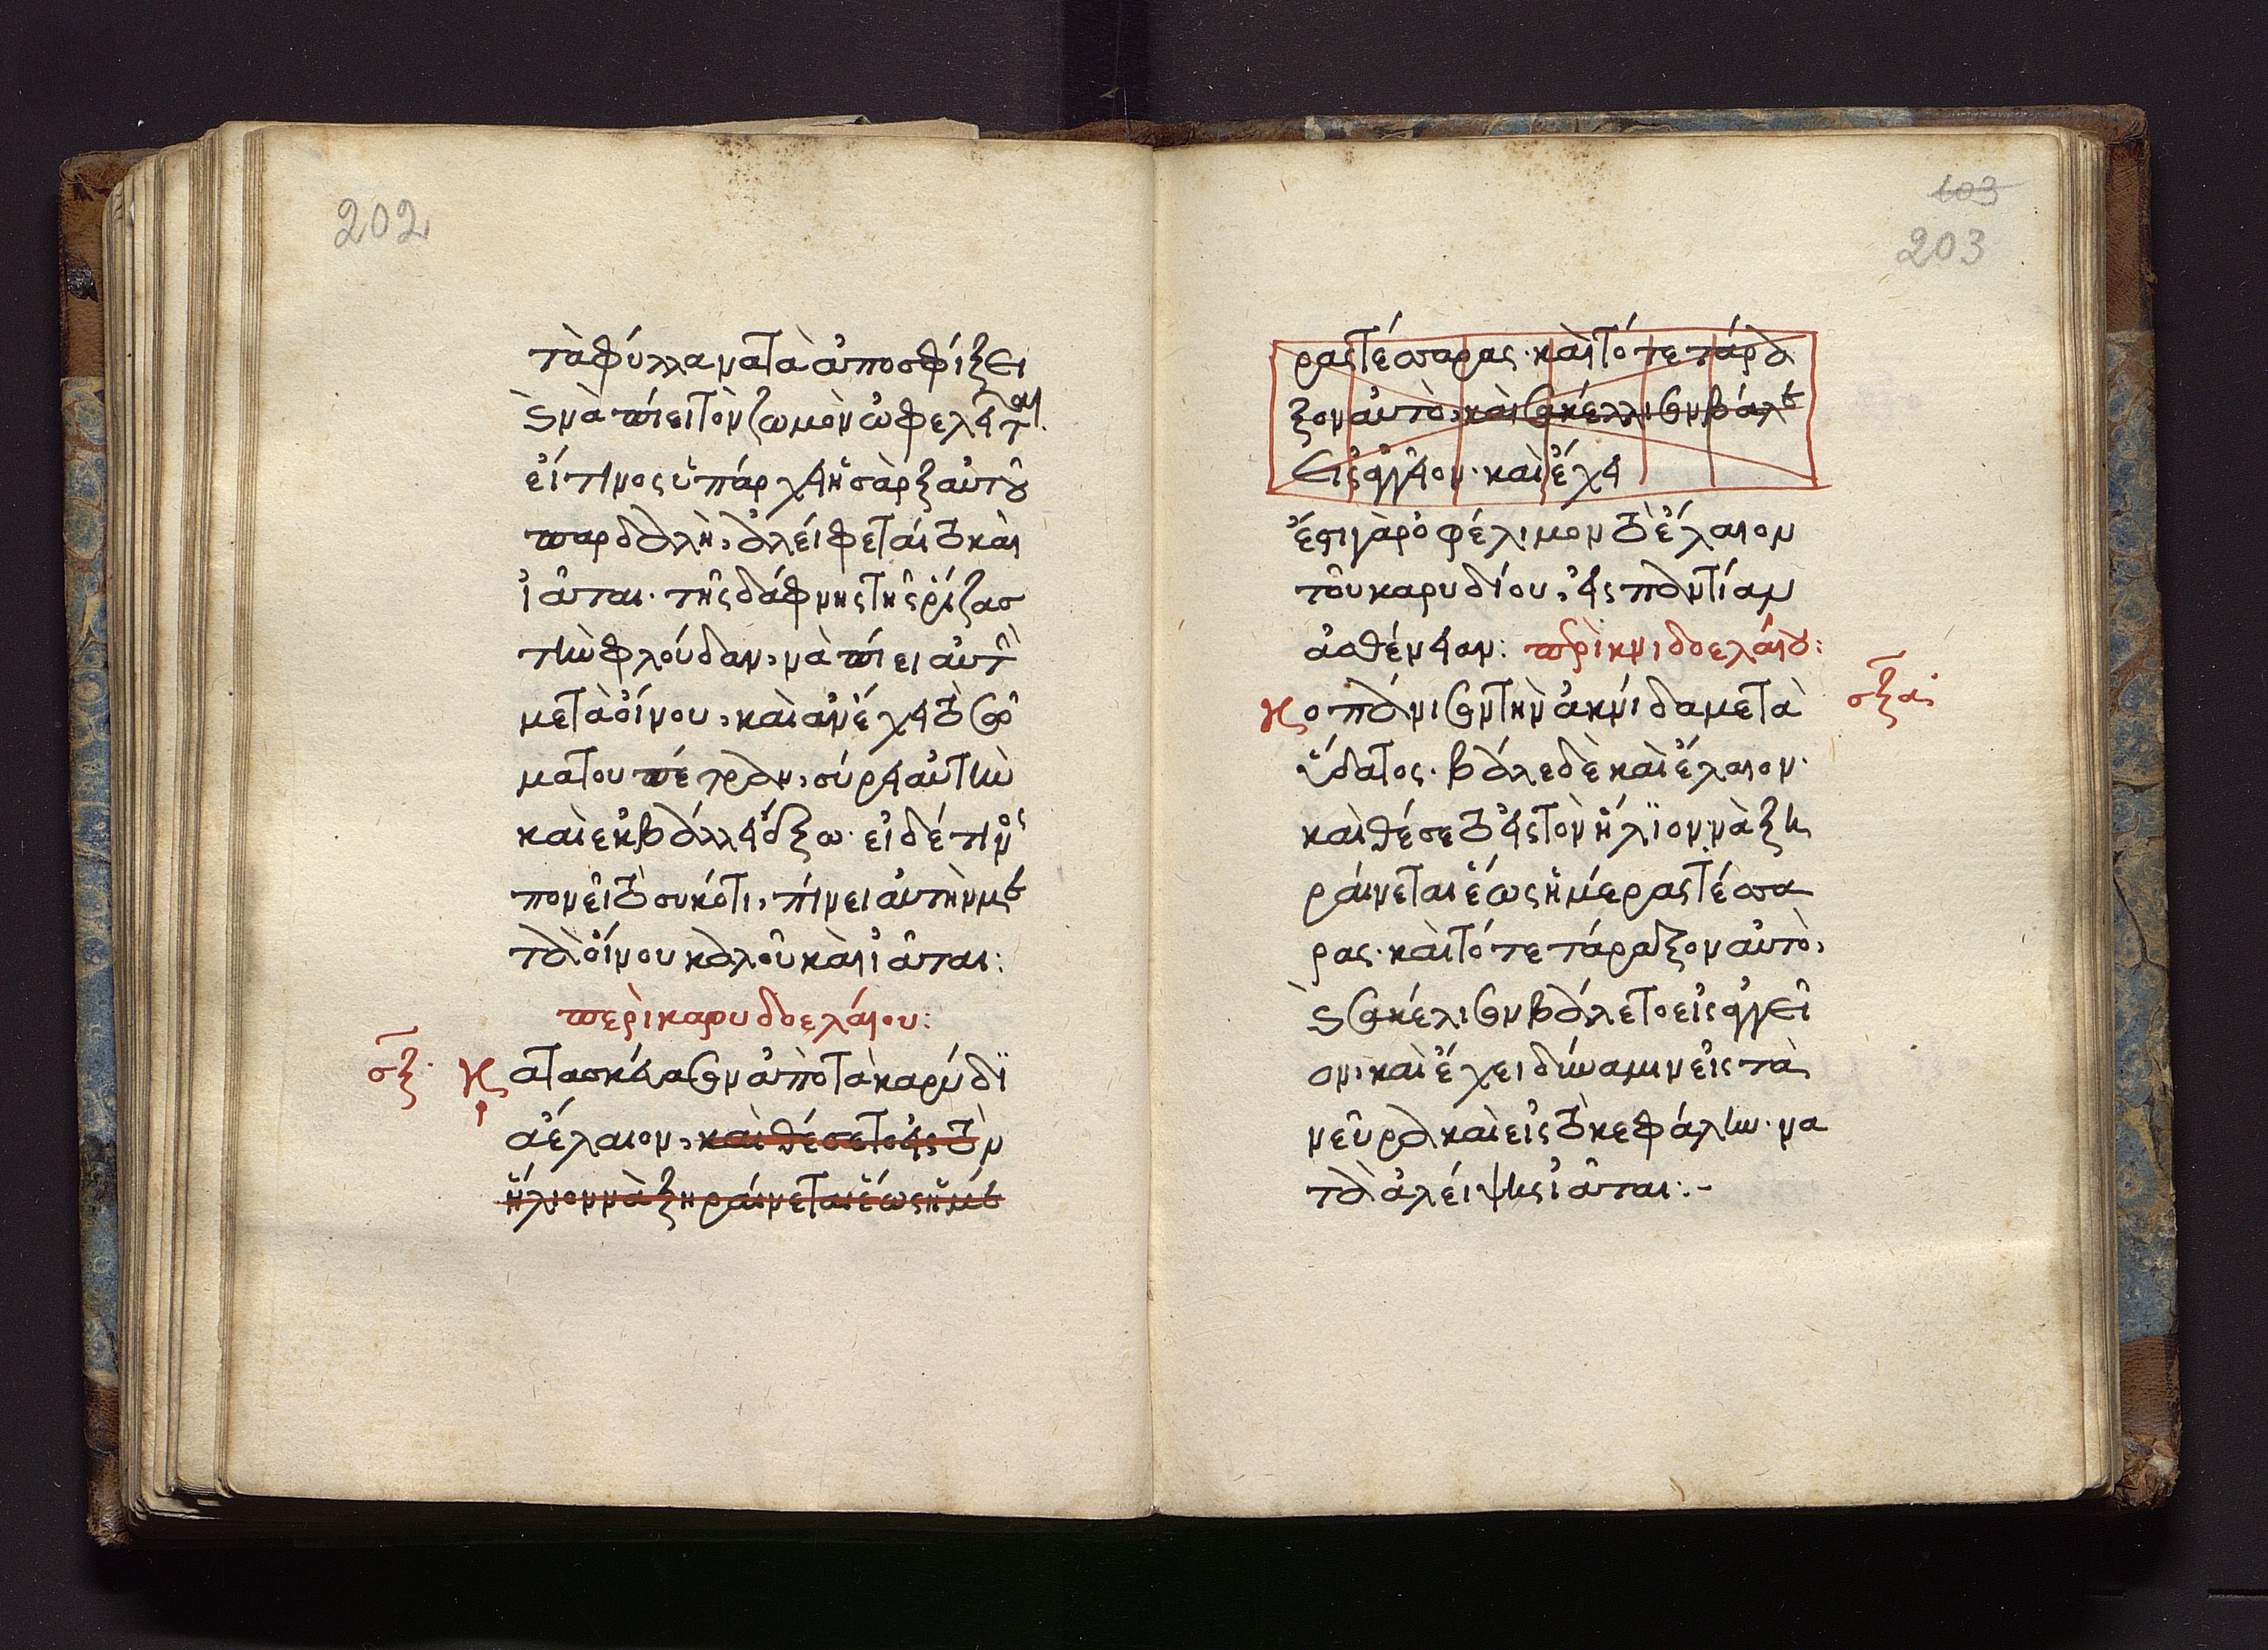 202
τὰ φύλλα νὰ τὰ ἀποσφίξει
ϛ νὰ πίει τὸν ζωμὸν ὠφελεῖται.
εἴ τινος ὑπάρχει ἡ σὰρξ αὐτοῦ
παρδαλὴ, ἀλείφεται τὸ καὶ
ἰᾶται. τῆς δάφνης τῆς ῥίζας
τὴν φλούδαν, νὰ πίει αὐτὴ
μετὰ οἴνου, καὶ ἀν ἔχει τὸ σῶ
μα του πέτραν, σύρει αὐτὴν
καὶ ἐκβάλλει ὄξω. εἰ δέ τινος
πονεῖ τὸ συκότι, πίνει αὐτὴν με
τὰ οἴνου καλοῦ καὶ ἰᾶται:
περὶ καρυδοελαίου:
σξ. Κ
ατασκεύασον ἀπὸ τὰ καρύδϊ
α ἔλαιον, καὶ θέσε το εἰς τὸν
ἥλιον νὰ ξηραίνεται ἕως ἡμέ
103
203
ρας τέσσαρας. καὶ τότε τάρα
ξον αὐτὸ, καὶ σακέλλισον βάλε
εἰς ἀγγεῖον. καὶ ἔχει
ἔστι γὰρ ὀφέλιμον τὸ ἔλαιον
τοῦ καρυδίου, εἰς παντίαν
ἀσθένειαν: περὶ κνιδοελαίου:
Κοπάνισον τὴν ἀκνίδα μετὰ
σξα
ὕδατος. βάλε δὲ καὶ ἔλαιον.
καὶ θέσε τὸ εἰς τὸν ἥλϊον νὰ ξη
ραίνεται ἕως ἡμέρας τέσσα
ρας. καὶ τότε τάραξον αὐτὸ,
ϛ σακέλισον βάλε το εἰς ἀγγεῖ
ον. καὶ ἔχει δύναμιν εἰς τὰ
νεῦρα καὶ εἰς τὸ κεφάλην. να
τὰ ἀλείψης ἰᾶται:-